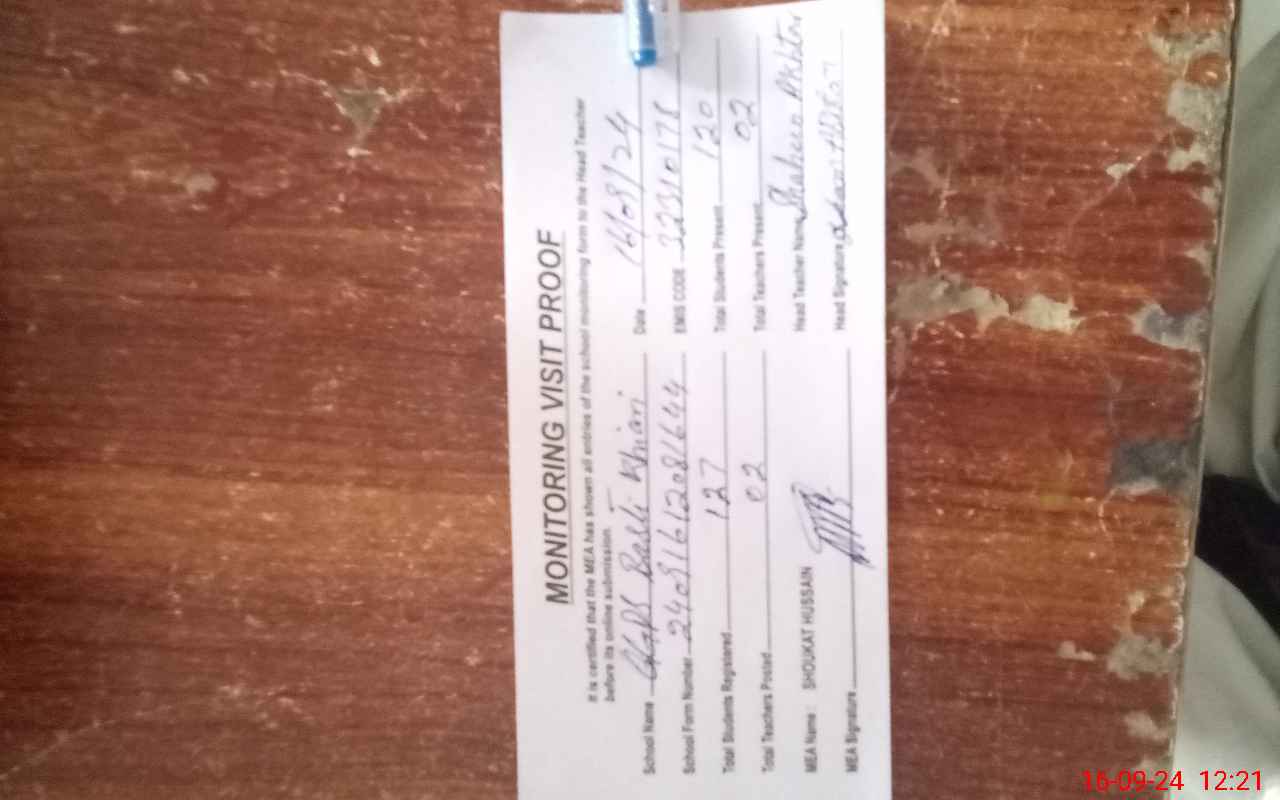 MONITORING VISIT PROOF
It is certified that the MEA has shown all entries of the school monitoring form to the Head Teacher
before its online submission.
School Name GGPS Basti Khiari Date 16/09/24
School Form Number 24091612081644 EMIS CODE 32310178
Total Students Registered 127 Total Students Present 120
Total Teachers Posted 02 Total Teachers Present 02
MEA Name: SHOUKAT HUSSAIN Head Teacher Name Shaheen Akhtar
MEA Signature Head Signature
16-09-24 12:21